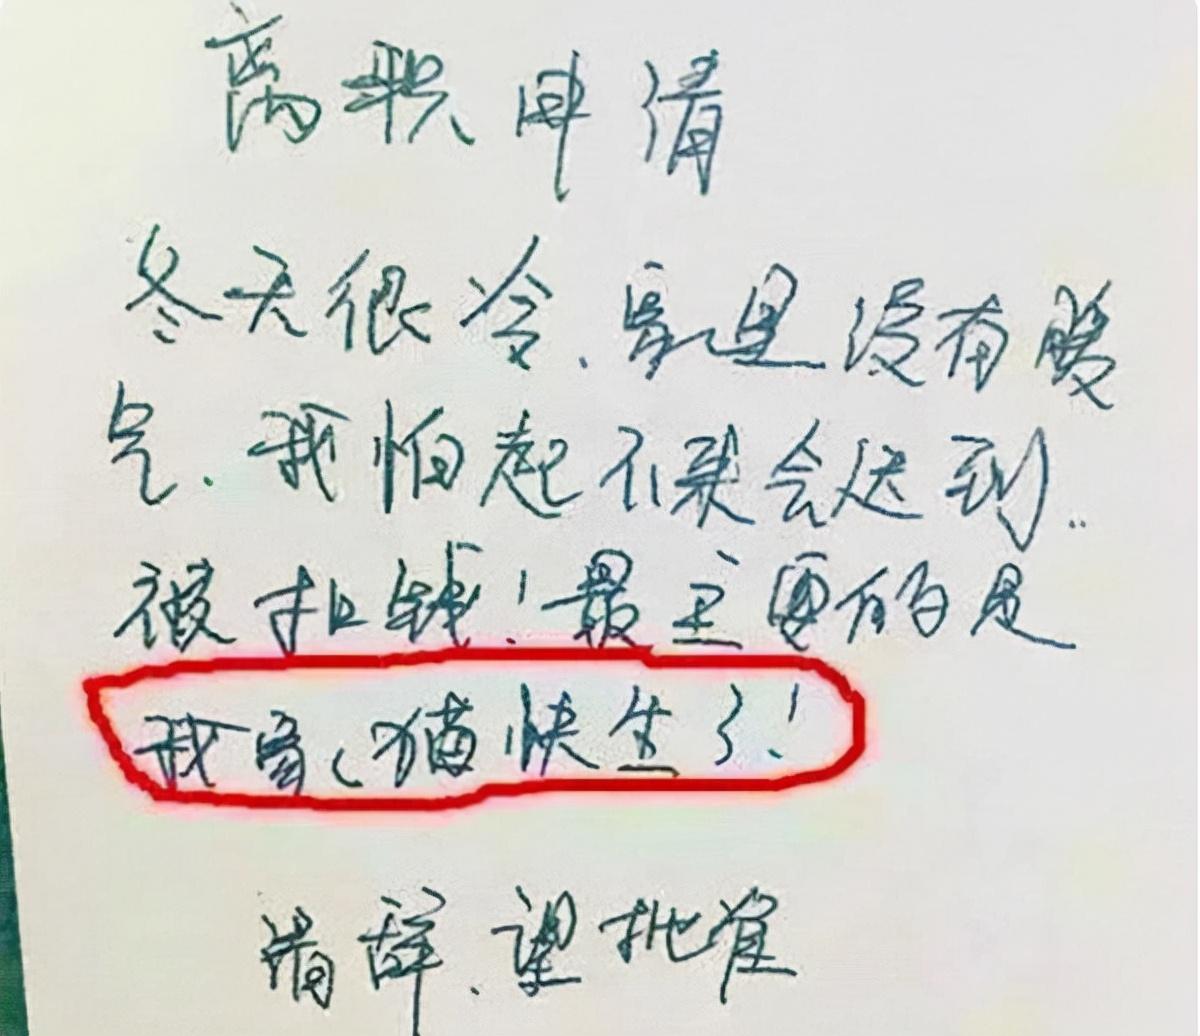 离职申请
冬天很冷、家里没有暖
气.我怕起不来会迟到..
被扣钱！最主要的是
我家猫快生了！
请辞.望批准